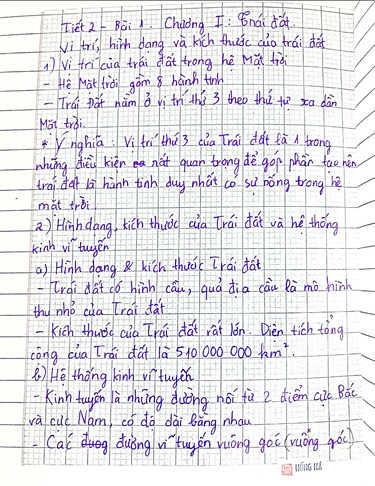 Tiết 2 - Bài 1 Chương I: Trái đất.
Vị trí, hình dạng và kích thước của trái đất
1) Vị trí của trái đất trong hệ Mặt trời
- Hệ Mặt trời gồm 8 hành tinh
- Trái Đất nằm ở vị trí thứ 3 theo thứ tự xa dần
Mặt trời.
* Ý nghĩa: Vị trí thứ 3 của Trái đất là 1 trong
những điều kiện rất quan trọng để góp phần tạo nên
trái đất là hành tinh duy nhất có sự sống trong hệ
mặt trời
2) Hình dạng, kích thước của Trái đất và hệ thống
kinh vĩ tuyến
a) Hình dạng & kích thước Trái đất
- Trái đất có hình cầu, quả địa cầu là mô hình
thu nhỏ của Trái đất
- Kích thước của Trái đất rất lớn. Diện tích tổng
cộng của Trái đất là 510 000 000 km².
b) Hệ thống kinh vĩ tuyến
- Kinh tuyến là những đường nối từ 2 điểm cực Bắc
và cực Nam, có độ dài bằng nhau
- Các đường vĩ tuyến vuông góc (vuông góc)
HỒNG HÀ